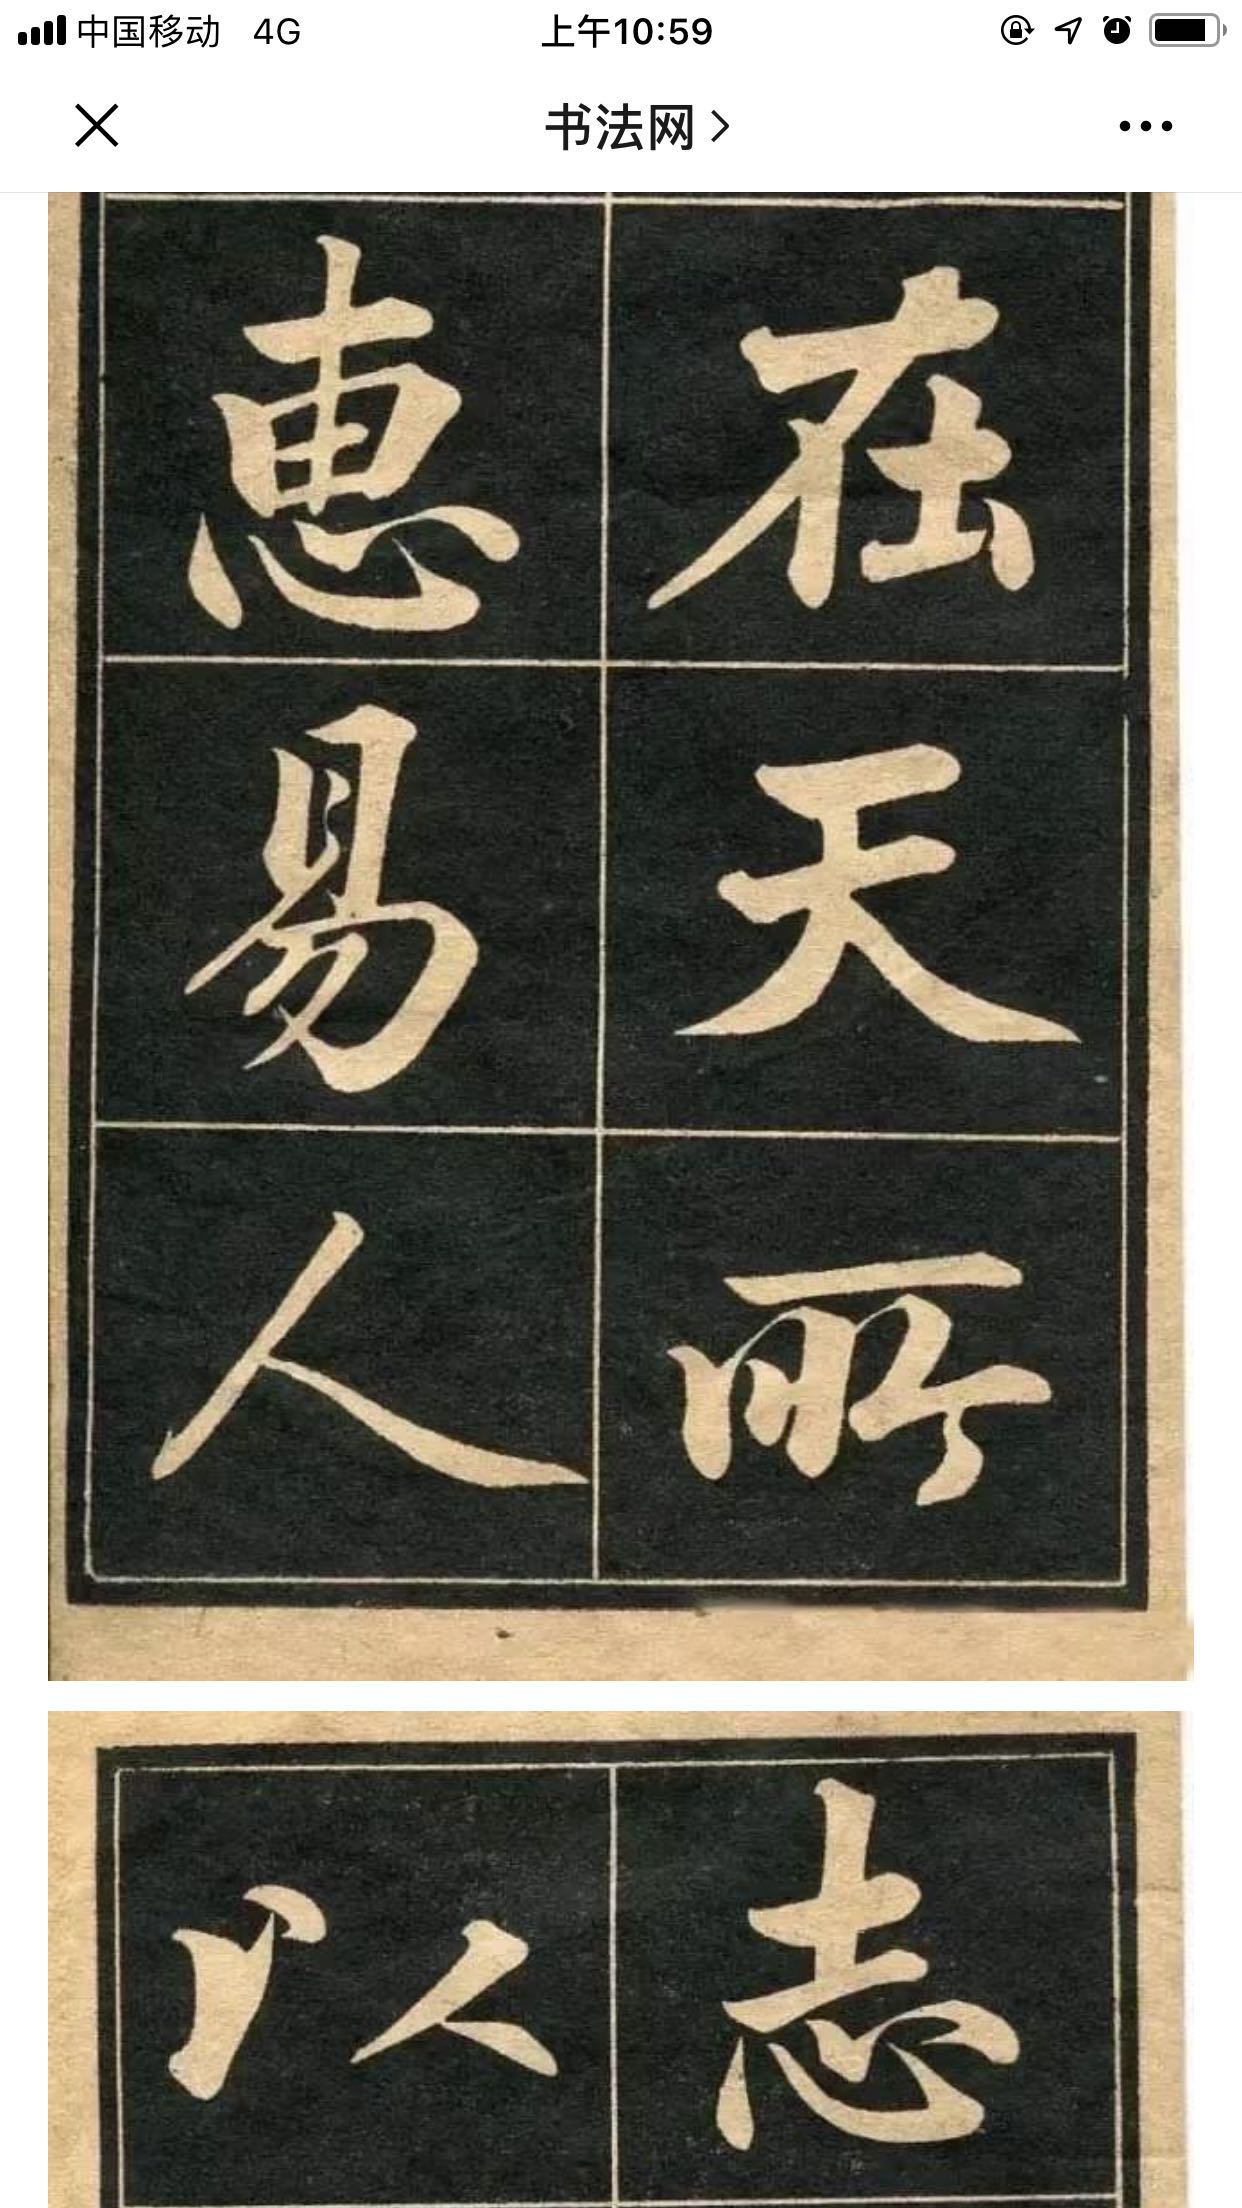 中国移动 4G 上午10:59
书法网
在天所
惠易人
志
以